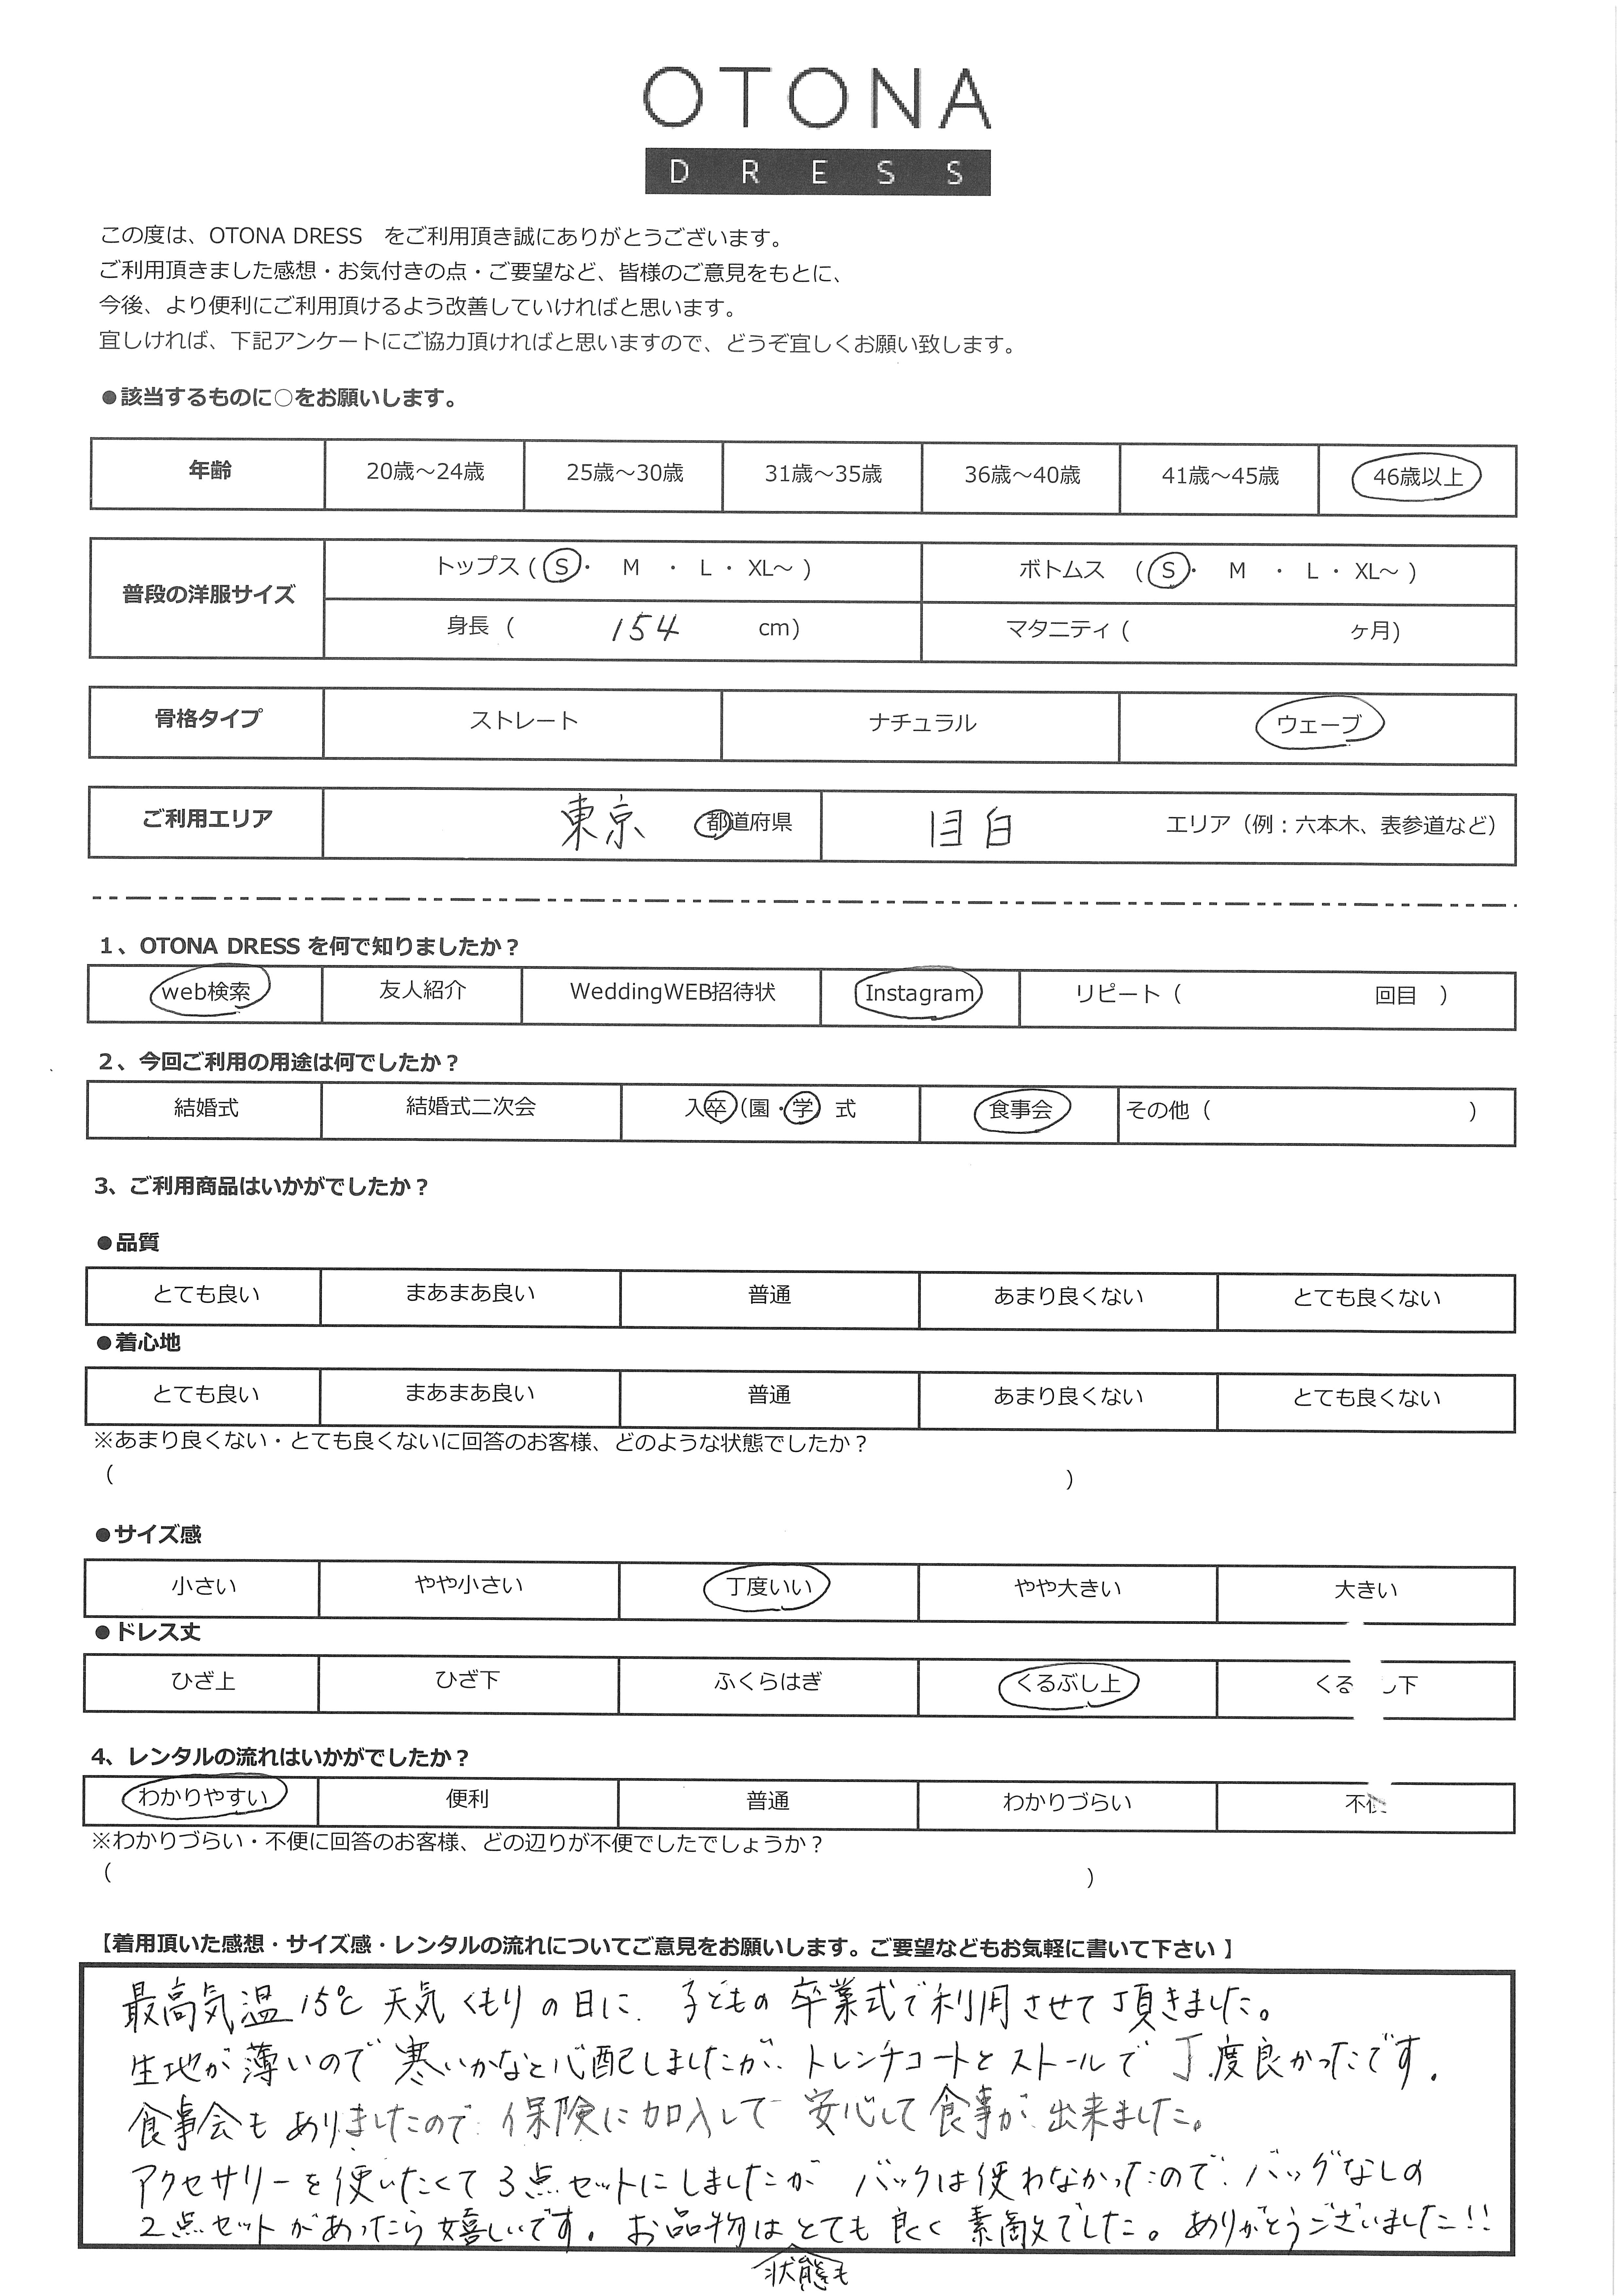 OTONA
DRESS
この度は、OTONA DRESS　をご利用頂き誠にありがとうございます。
ご利用頂きました感想・お気付きの点・ご要望など、皆様のご意見をもとに、
今後、より便利にご利用頂けるよう改善していければと思います。
宜しければ、下記アンケートにご協力頂ければと思いますので、どうぞ宜しくお願い致します。
●該当するものに○をお願いします。
年齢 20歳～24歳 25歳～30歳 31歳～35歳 36歳～40歳 41歳～45歳 46歳以上
普段の洋服サイズ トップス ( S ・ M ・ L ・ XL～ ) ボトムス ( S ・ M ・ L ・ XL～ )
身長 ( 154 cm) マタニティ ( ヶ月)
骨格タイプ ストレート ナチュラル ウェーブ
ご利用エリア 東京 都道府県 目白 エリア（例：六本木、表参道など）
1、OTONA DRESS を何で知りましたか？
web検索 友人紹介 WeddingWEB招待状 Instagram リピート（ 回目 ）
2、今回ご利用の用途は何でしたか？
結婚式 結婚式二次会 入卒（園・学 式 食事会 その他（ ）
3、ご利用商品はいかがでしたか？
●品質
とても良い まあまあ良い 普通 あまり良くない とても良くない
●着心地
とても良い まあまあ良い 普通 あまり良くない とても良くない
※あまり良くない・とても良くないに回答のお客様、どのような状態でしたか？
（ ）
●サイズ感
小さい やや小さい 丁度いい やや大きい 大きい
●ドレス丈
ひざ上 ひざ下 ふくらはぎ くるぶし上 くる し下
4、レンタルの流れはいかがでしたか？
わかりやすい 便利 普通 わかりづらい 不便
※わかりづらい・不便に回答のお客様、どの辺りが不便でしたでしょうか？
（ ）
【着用頂いた感想・サイズ感・レンタルの流れについてご意見をお願いします。ご要望などもお気軽に書いて下さい 】
最高気温15℃ 天気くもりの日に、子どもの卒業式で利用させて頂きました。
生地が薄いので寒いかなと心配しましたが、トレンチコートとストールで丁度良かったです。
食事会もありましたので、保険に加入して安心して食事が出来ました。
アクセサリーを使いたくて3点セットにしましたが バックは使わなかったので、バッグなしの
2点セットがあったら嬉しいです。お品物はとても良く素敵でした。ありがとうございました!!
状態も